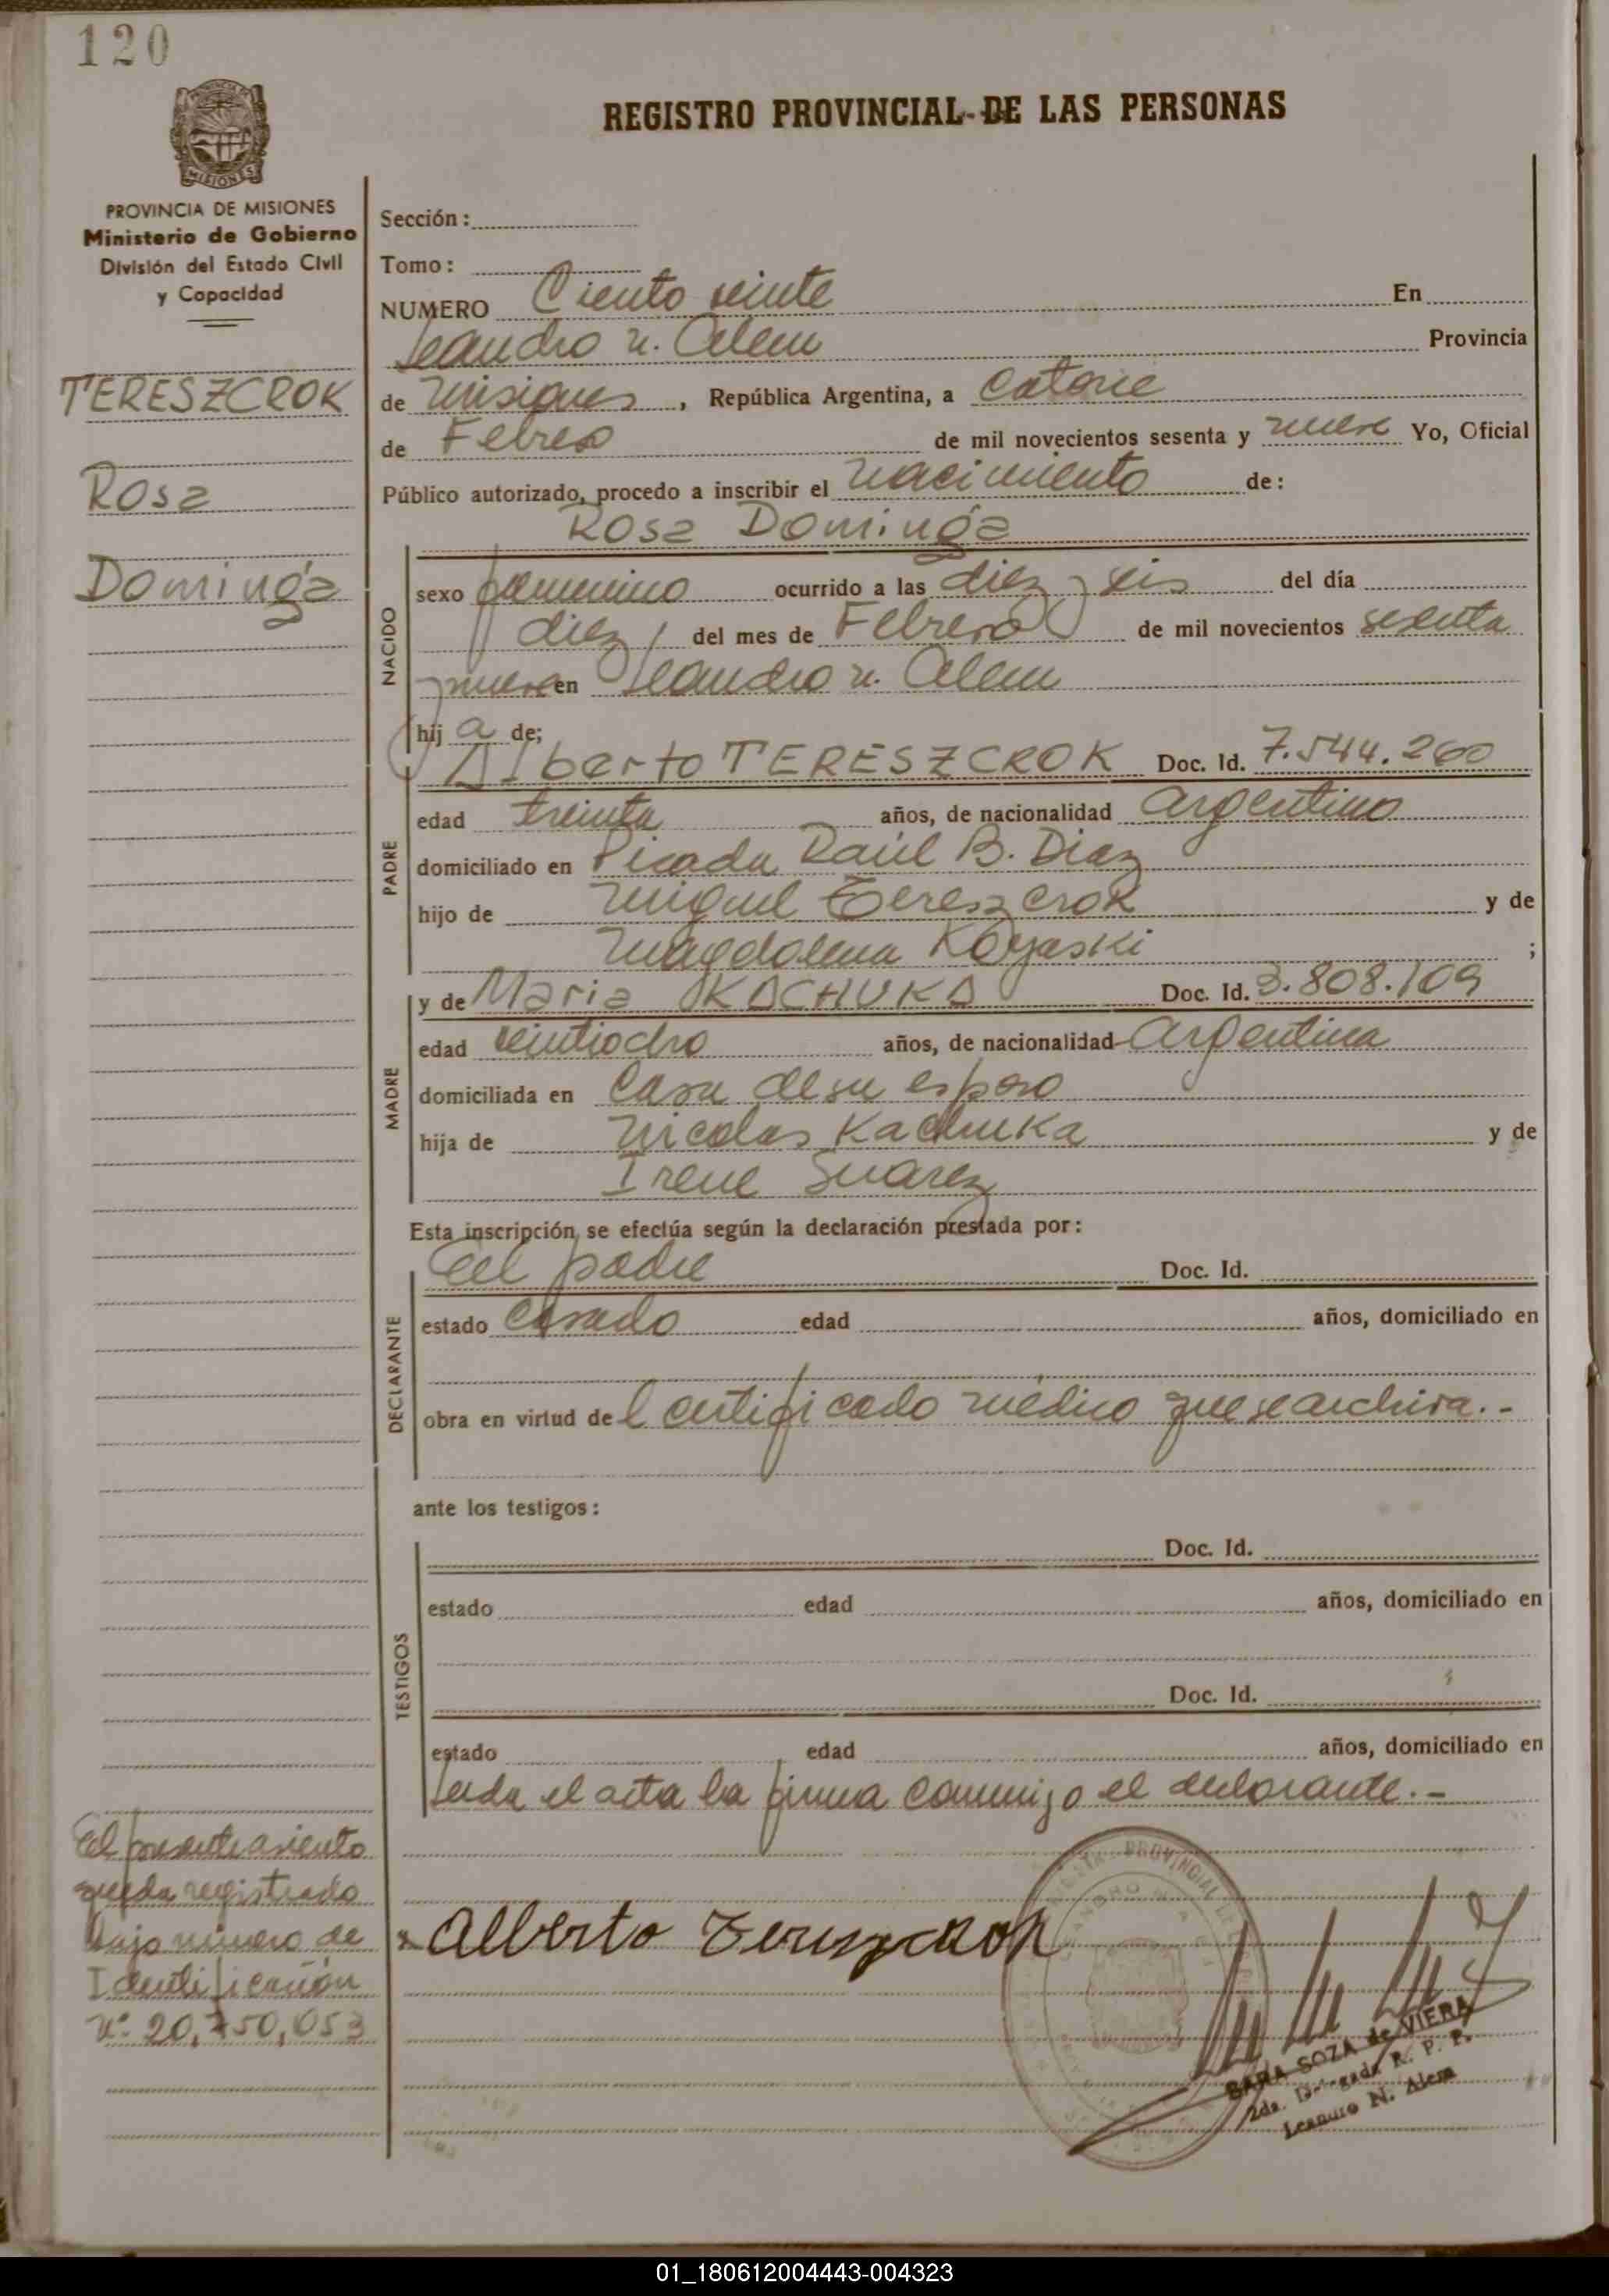 120
PROVINCIA DE
MISIONES
REGISTRO PROVINCIAL DE LAS PERSONAS
PROVINCIA DE MISIONES
Ministerio de Gobierno
División del Estado Civil
y Capacidad
TERESZCROK
Rosa
Dominga
Sección:
Tomo:
NUMERO Ciento veinte En
Leandro N. Alem Provincia
de Misiones, República Argentina, a Catorce
de Febrero de mil novecientos sesenta y nueve Yo, Oficial
Público autorizado, procedo a inscribir el nacimiento de:
Rosa Dominga
NACIDO
sexo femenino ocurrido a las diez y seis del día
diez del mes de Febrero de mil novecientos sesenta
y nueve en Leandro N. Alem
hij a de;
PADRE
Alberto TERESZCROK Doc. Id. 7.544.260
edad treinta años, de nacionalidad Argentino
domiciliado en Picada Raúl B. Diaz
hijo de Miguel Tereszcrok y de
Magdalena Koyaski ;
MADRE
y de Maria KACHUKA Doc. Id. 3.808.109
edad veintiocho años, de nacionalidad Argentina
domiciliada en Casa de su esposo
hija de Nicolas Kachuka y de
Irene Suarez
Esta inscripción se efectúa según la declaración prestada por:
DECLARANTE
El padre Doc. Id.
estado Casado edad años, domiciliado en
obra en virtud de l certificado médico que se archiva.-
ante los testigos:
TESTIGOS
Doc. Id.
estado edad años, domiciliado en
Doc. Id.
estado edad años, domiciliado en
Leida el acta la firma conmigo el declarante.-
El presente asiento
queda registrado
bajo número de
Identificación
Nº 20,750,053
Alberto Tereszcrok
SARA SOZA de VIERA
2da. Delegada R. P. P.
Leandro N. Alem
01_180612004443-004323